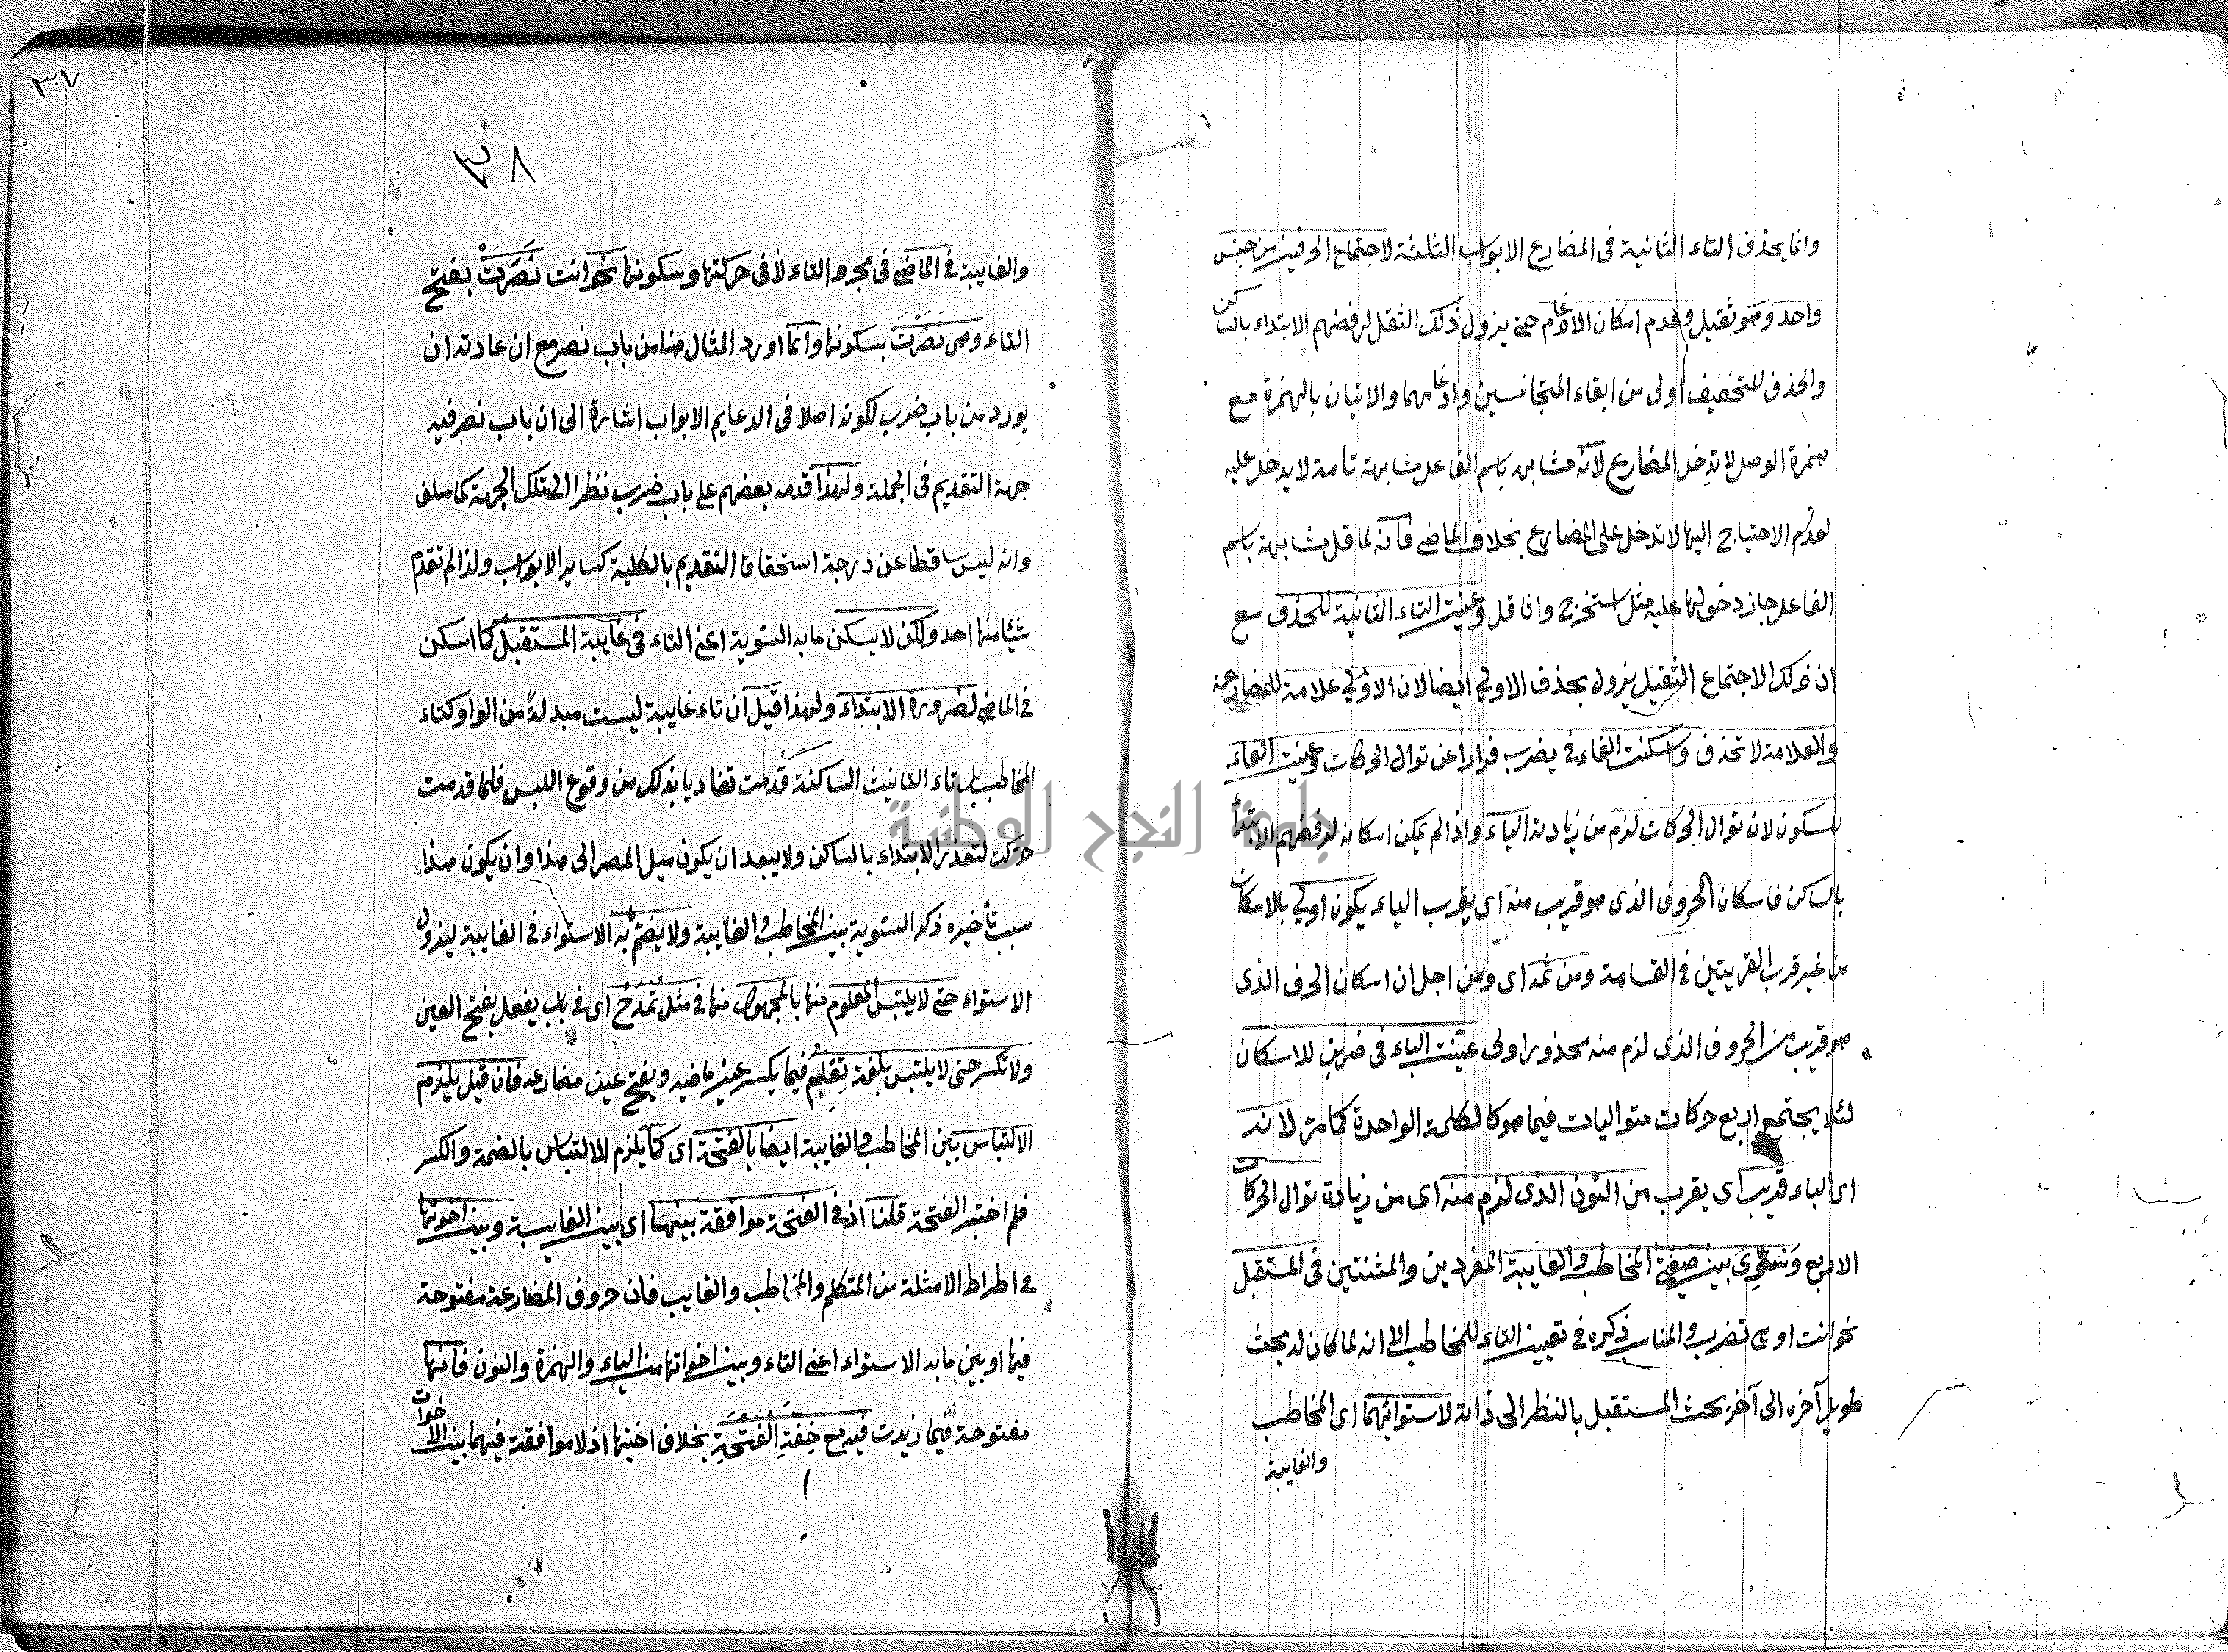 وانما يحذف التاء الثانية في المضارع الابواب الثلثة لاجتماع الحرفين من جنس
واحد وهو ثقيل وعدم امكان الادغام حتى يزول ذلك الثقل لرفضهم الابتداء بالساكن
والحذف للتخفيف اولى من ابقاء المتجانسين وادغامهما والاتيان بالهمزة مع
همزة الوصل لا تدخل المضارع لانه مشابه باسم الفاعل مشابهة تامة لا يدخل عليه
لعدم الاحتياج اليها لا تدخل على المضارع بخلاف الماضي فانه لما قل مشابهة باسم
الفاعل جاز دخولها عليه مثل استخرج وانما قل وعينت التاء الثانية للحذف مع
ان ذلك الاجتماع الثقيل يزول بحذف الاولي ايضا لان الاولي علامة للمضارعة
والعلامة لا تحذف واسكنت الفاء في يضرب فرارا عن توالى الحركات وعينت الفاء
للسكون لان توالى الحركات لزم من زيادة الياء واذا لم يمكن اسكانه لرفضهم الابتداء
بالساكن فاسكان الحروف الذى هو قريب منه اى يقرب الياء يكون اولي بالاسكان
من غير قرب القريبتين في القسامة ومن ثمه اى ومن اجل ان اسكان الحرف الذى
هو قريب من الحروف الذى لزم منه محذور اولى عينت الباء في ضربن للاسكان
لئلا يجتمع اربع حركات متواليات فيما هو كالكلمة الواحدة كما مر لانه
اى الباء قريب اى يقرب من النون الذى لزم منه اى من زيادة توالى الحركات
الاربع وتسوى بين صيغة المخاطب والغايبة المفردين والمثنتين في المستقبل
نحو انت او هي تضرب والمناسب ذكره في تعيين التاء للمخاطب الا انه لما كان له بحث
طويل آخره الى آخر بحث المستقبل بالنظر الى ذاته لاستوائهما اى المخاطب
والغايبة
٣٠٧
٣٨
والغايبة في الماضي في مجرد التاء لا في حركتها وسكونها نحو انت نَصَرْتَ بفتح
التاء وهي نَصَرَتْ بسكونها وانما اورد المثال هنا من باب نصر مع ان عادته ان
يورد من باب ضرب لكونه اصلا في الدعايم الابواب اشارة الى ان باب نصر فيه
جهة التقديم في الجملة ولهذا قدمه بعضهم على باب ضرب نظر الى تلك الجهة كما سلف
وانه ليس ساقطا عن درجة استحقاق التقديم بالكلية كساير الابواب ولذا لم تقدم
شيئا منها احد ولكن لا يسكن ما به التسوية اعني التاء في غايبة المستقبل كما اسكن
في الماضي لضرورة الابتداء ولهذا قيل ان تاء غايبة ليست مبدلة من الواو كتاء
المخاطب بل تاء التانيث الساكنة قدمت تفاديا بذلك من وقوع اللبس فلما قدمت
حركت لتعذر الابتداء بالساكن ولا يبعد ان يكون ميل المصر الى هذا وان يكون هذا
سبب تأخيره ذكر التسوية بين المخاطب والغايبة ولا يضم به الاستواء في الغايبة ليزول
الاستواء حتى لا يلتبس المعلوم منها بالمجهول منها في مثل تمدح اى في باب يفعل بفتح العين
ولا تكسر حتى لا يلتبس بلغة تِعْلم فيما يكسر عين ماضيه ويفتح عين مضارعه فان قيل يلزم
الالتباس بين المخاطب والغايبة ايضا بالفتحة اى كما يلزم الالتباس بالضمة والكسر
فلم اختير الفتحة قلنا اذ في الفتحة موافقة بينهما اى بين الغايبة وبين اخوتها
في اطراط الامثلة من المتكلم والمخاطب والغايب فان حروف المضارعة مفتوحة
فيها او بين ما به الاستواء اعني التاء وبين اخواتها من الياء والهمزة والنون فانها
مفتوحة فيما زيدت فيه مع خفة الفتحة بخلاف اختيها اذ لا موافقة فيهما بين الاخوات
جامعة النجاح الوطنية